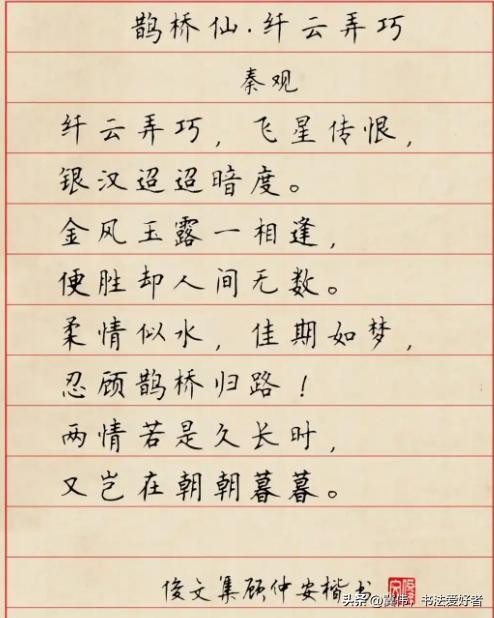 鹊桥仙·纤云弄巧
秦观
纤云弄巧，飞星传恨，
银汉迢迢暗度。
金风玉露一相逢，
便胜却人间无数。
柔情似水，佳期如梦，
忍顾鹊桥归路！
两情若是久长时，
又岂在朝朝暮暮。
俊文集顾仲安楷书
头条@冀伟，书法爱好者